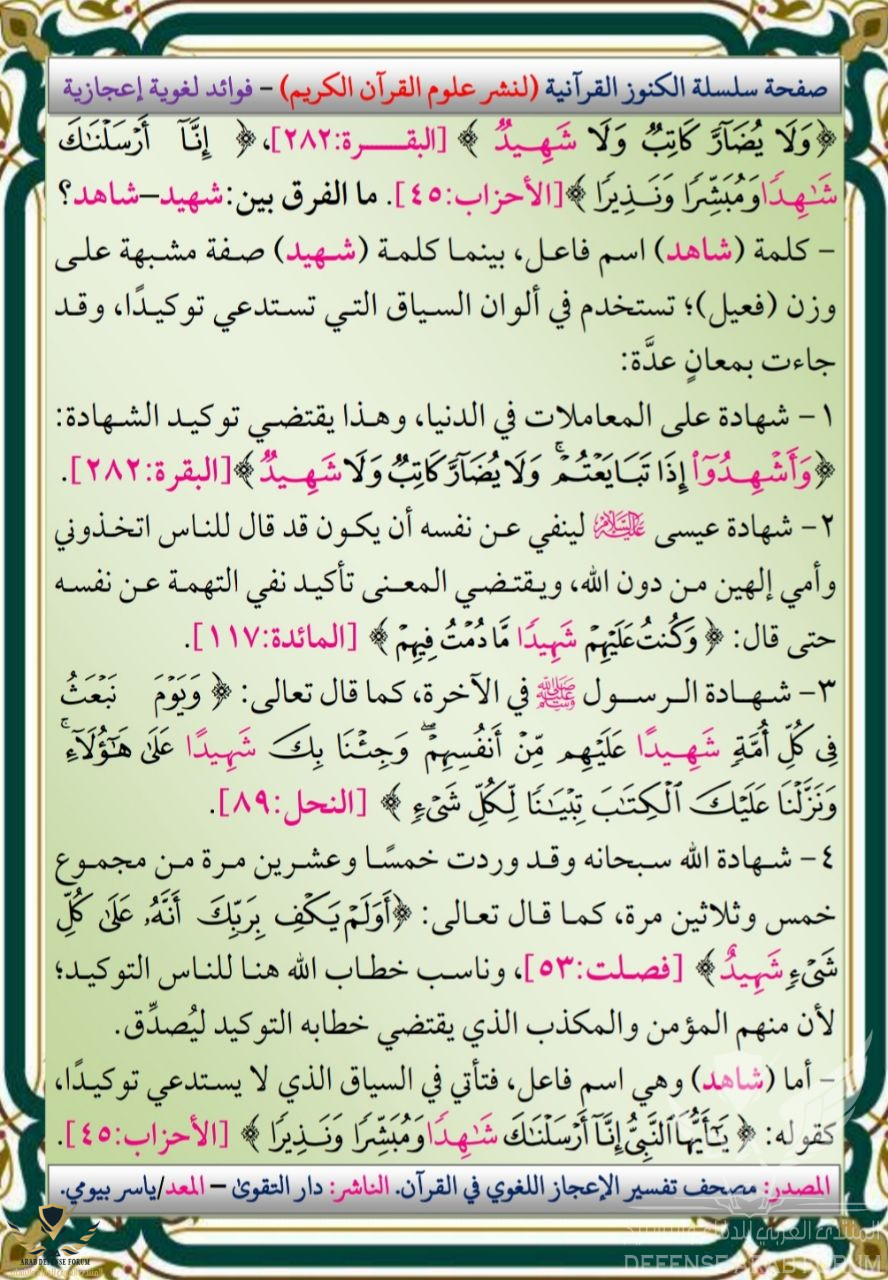 صفحة سلسلة الكنوز القرآنية (لنشر علوم القرآن الكريم) – فوائد لغوية إعجازية
﴿وَلَا يُضَآرَّ كَاتِبٌ وَلَا شَهِيدٌ ﴾ [البقـــرة:٢٨٢]، ﴿ إِنَّآ أَرْسَلْنَٰكَ
شَٰهِدًا وَمُبَشِّرًا وَنَذِيرًا ﴾[الأحزاب:٤٥]. ما الفرق بين:شهيد–شاهد؟
– كلمة (شاهد) اسم فاعل، بينما كلمة (شهيد) صفة مشبهة على
وزن (فعيل)؛ تستخدم في ألوان السياق التي تستدعي توكيدًا، وقد
جاءت بمعانٍ عدَّة:
١– شهادة على المعاملات في الدنيا، وهذا يقتضي توكيد الشهادة:
﴿وَأَشْهِدُوٓا۟ إِذَا تَبَايَعْتُمْ ۚ وَلَا يُضَآرَّ كَاتِبٌ وَلَا شَهِيدٌ﴾[البقرة:٢٨٢].
٢– شهادة عيسى عليه السلام لينفي عن نفسه أن يكون قد قال للناس اتخذوني
وأمي إلهين من دون الله، ويقتضي المعنى تأكيد نفي التهمة عن نفسه
حتى قال: ﴿ وَكُنتُ عَلَيْهِمْ شَهِيدًا مَّا دُمْتُ فِيهِمْ ﴾ [المائدة:١١٧].
٣– شهادة الرسول ﷺ في الآخرة، كما قال تعالى: ﴿ وَيَوْمَ نَبْعَثُ
فِى كُلِّ أُمَّةٍ شَهِيدًا عَلَيْهِم مِّنْ أَنفُسِهِمْ ۖ وَجِئْنَا بِكَ شَهِيدًا عَلَىٰ هَٰٓؤُلَآءِ ۚ
وَنَزَّلْنَا عَلَيْكَ ٱلْكِتَٰبَ تِبْيَٰنًا لِّكُلِّ شَىْءٍ ﴾ [النحل:٨٩].
٤– شهادة الله سبحانه وقد وردت خمسًا وعشرين مرة من مجموع
خمس وثلاثين مرة، كما قال تعالى: ﴿أَوَلَمْ يَكْفِ بِرَبِّكَ أَنَّهُۥ عَلَىٰ كُلِّ
شَىْءٍ شَهِيدٌ﴾ [فصلت:٥٣]، وناسب خطاب الله هنا للناس التوكيد؛
لأن منهم المؤمن والمكذب الذي يقتضي خطابه التوكيد ليُصدِّق.
– أما (شاهد) وهي اسم فاعل، فتأتي في السياق الذي لا يستدعي توكيدًا،
كقوله: ﴿ يَٰٓأَيُّهَا ٱلنَّبِىُّ إِنَّآ أَرْسَلْنَٰكَ شَٰهِدًا وَمُبَشِّرًا وَنَذِيرًا ﴾ [الأحزاب:٤٥].
المصدر: مصحف تفسير الإعجاز اللغوي في القرآن. الناشر: دار التقوىٰ – المعد/ياسر بيومي.
المنتدى العربي للدفاع والتسليح
DEFENSE ARAB FORUM
ARAB DEFENSE FORUM